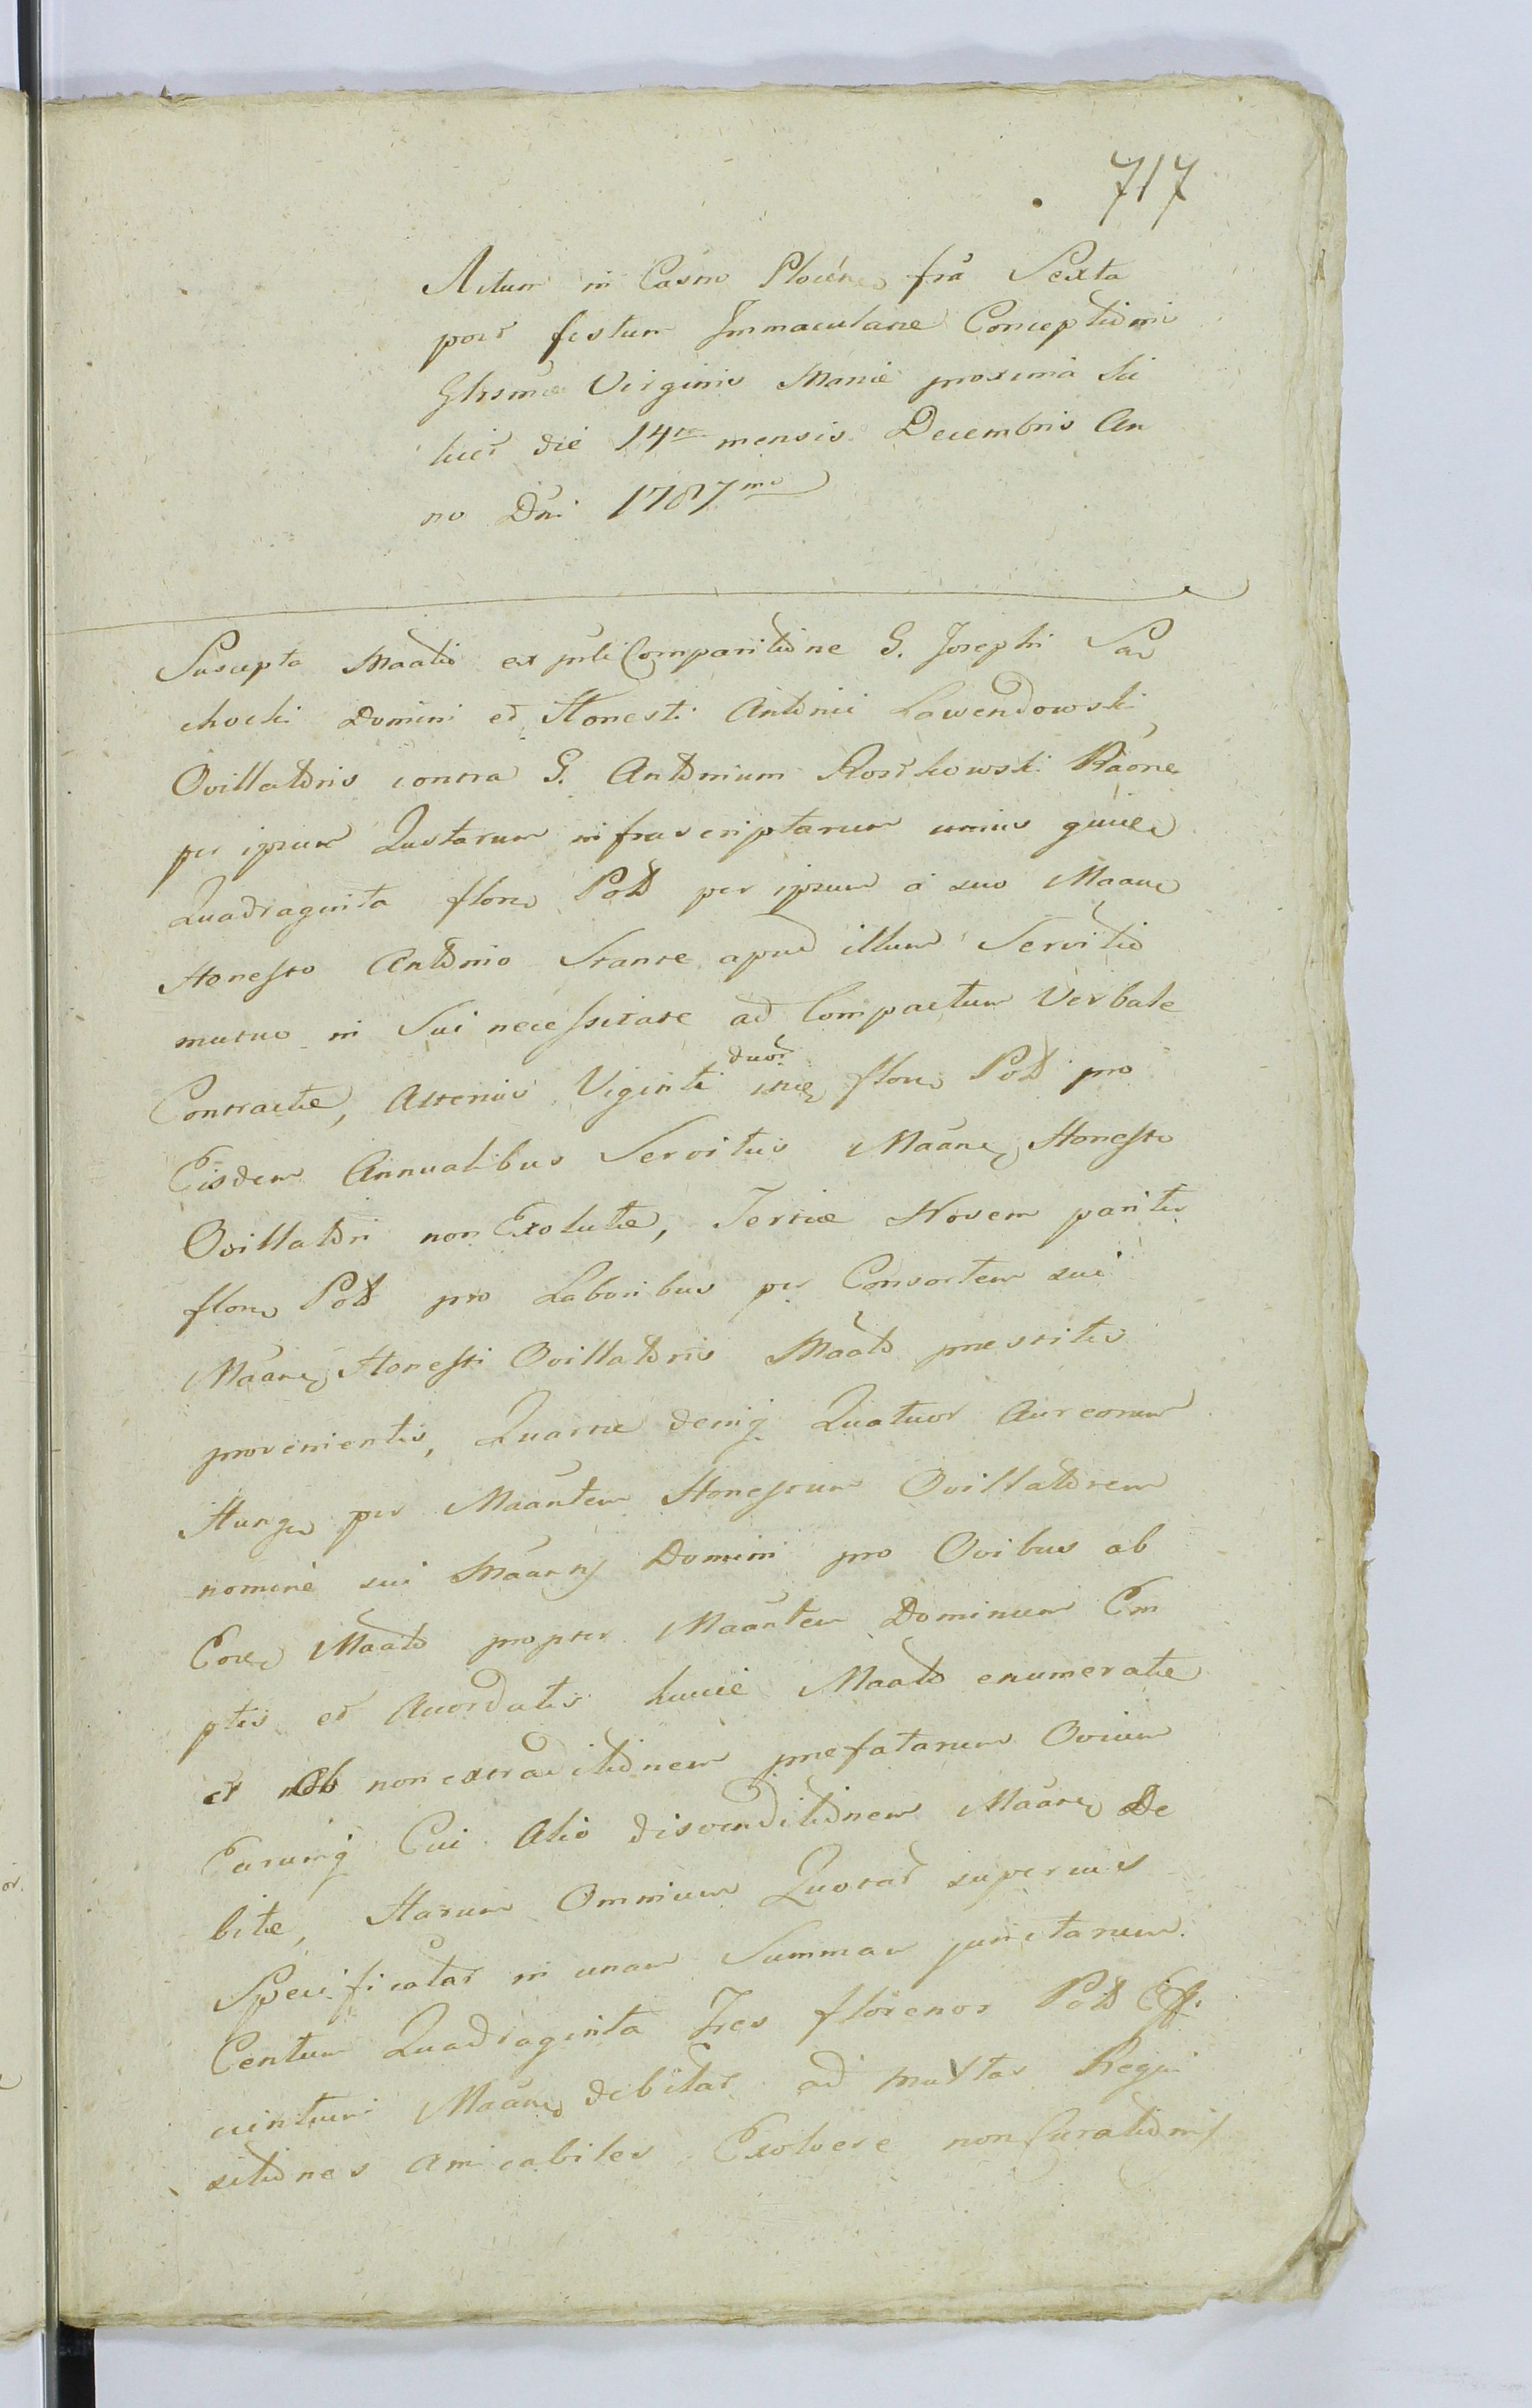 717
Actum in Casro Plocens fra Sexta
post festum Immaculatae Conceptionis
Glrsmae Virginis Mariae proxima sci
licet die 14ta mensis Decembris An
no Dni 1787mo
Suscepta Maatio ex psnli Comparitione G. Josephi Sar
chocki Domini et Honesti Antonii Lawendowski
Ovillatoris contra G. Antonium Rostkowski Raone
per ipsum Quotarum infrascriptarum unius quidem
Quadraginta floren Polo per ipsum a suo Maante
Honesto Antonio Stante apud illum Servitio
mutuo in Sui necessitate ad Compactum Verbale
Contractae, Alterius Viginti duor floren Polo pro
Eisdem Annualibus Servitiis Maante Honesto
Ovillatori non Exolutae, Tertiae Novem pariter
floren Polo pro Laboribus per Consortem sui
Maantis Honesti Ovillatoris Maato praestitis
provenientis, Quartae deniq Quatuor Aureorum
Hungar per Maantem Honestum Ovillatorem
nomine sui Maantis Domini pro Ovibus ab
Eodem Maato propter Maantem Dominum Em
ptis et Accordatis huicce Maato enumeratae
et ob non extraditionem praefatarum Ovium
Earumq Cui Alio disvenditionem Maante De
bitae, Harum Omnium Quotar superius
Specificatar in unam Summam junctarum
Centum Quadraginta Tres florenos Polo Effi
cientium Maante debitar ad multas Requi
sitiones amicabiles Exolvere non Curationis